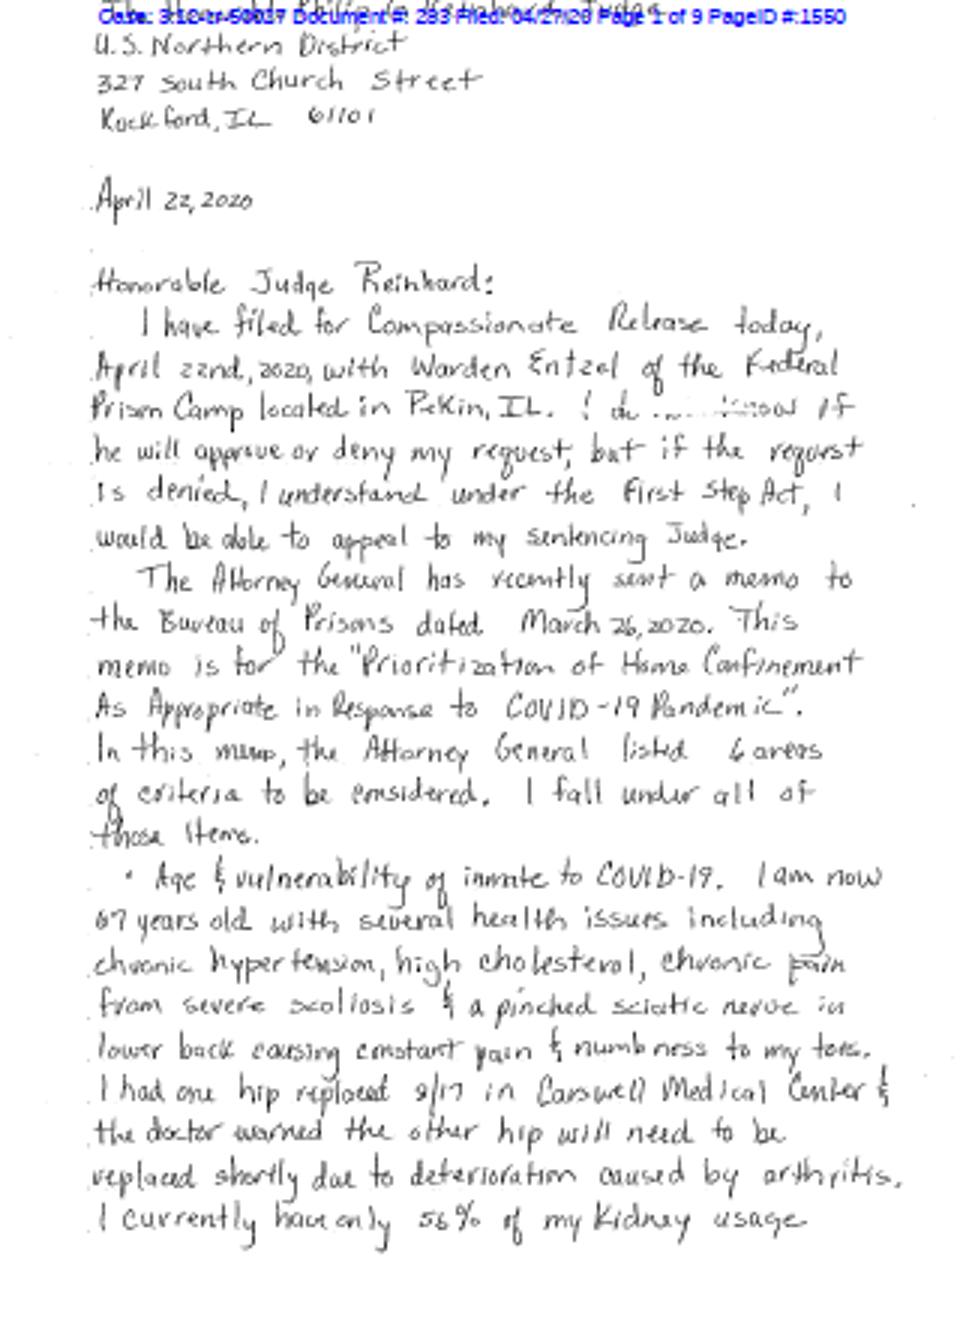 The Honorable Philip G. Reinhard Judge
Case: 3:12-cr-50027 Document #: 283 Filed: 04/27/20 Page 1 of 9 PageID #:1550
U.S. Northern District
327 South Church Street
Rockford, IL 61101
April 22, 2020
Honorable Judge Reinhard:
I have filed for Compassionate Release today,
April 22nd, 2020, with Warden Entzel of the Federal
Prison Camp located in Pekin, IL. I do know if
he will approve or deny my request, but if the request
is denied, I understand under the First Step Act, I
would be able to appeal to my sentencing Judge.
The Attorney General has recently sent a memo to
the Bureau of Prisons dated March 26, 2020. This
memo is for the "Prioritization of Home Confinement
As Appropriate in Response to COVID-19 Pandemic".
In this memo, the Attorney General listed 6 areas
of criteria to be considered. I fall under all of
those items.
• Age & vulnerability of inmate to COVID-19. I am now
67 years old with several health issues including
chronic hypertension, high cholesterol, chronic pain
from severe scoliosis & a pinched sciatic nerve in
lower back causing constant pain & numbness to my toes.
I had one hip replaced 9/17 in Carswell Medical Center &
the doctor warned the other hip will need to be
replaced shortly due to deterioration caused by arthritis.
I currently have only 56% of my Kidney usage